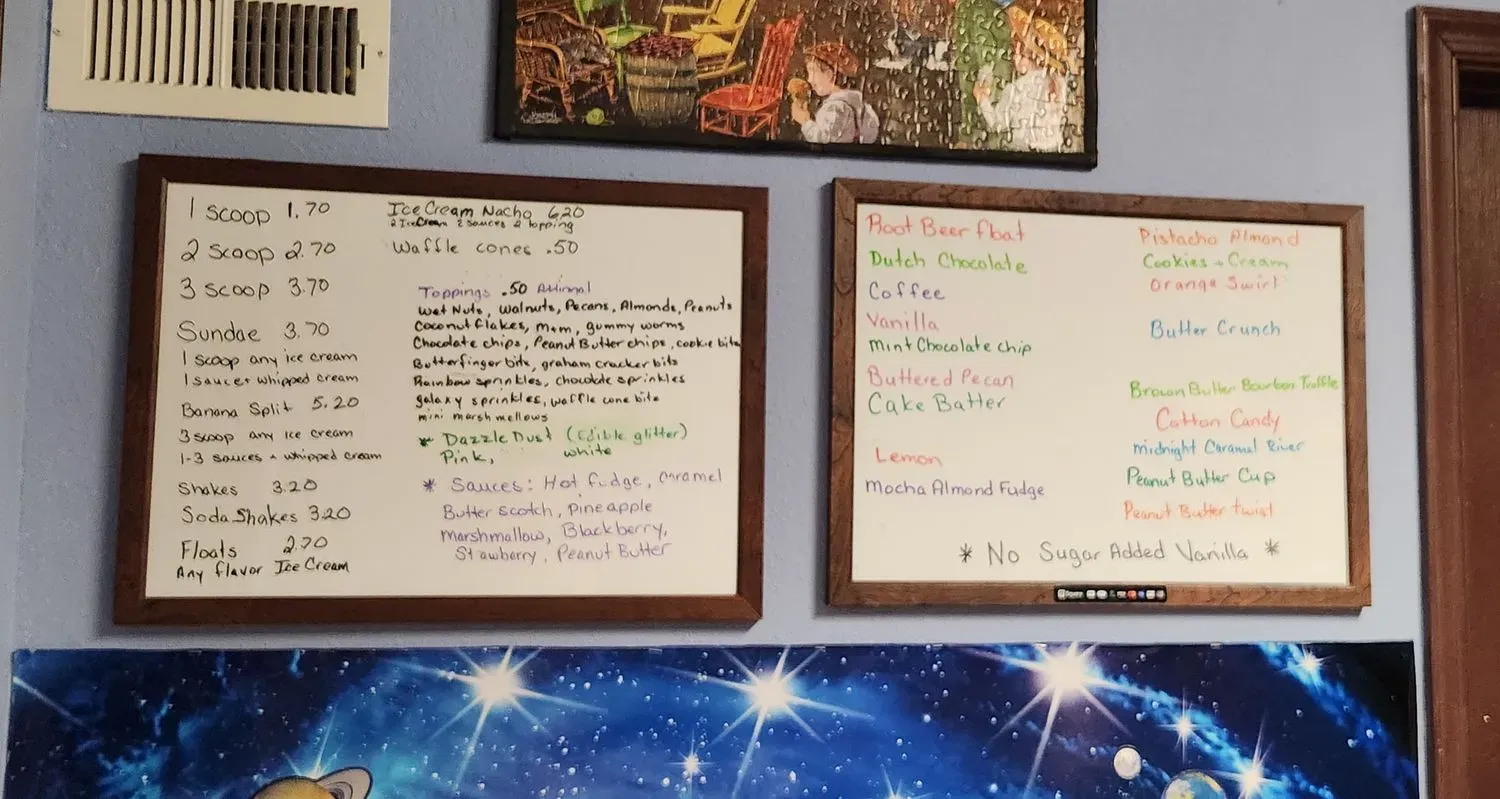 1 Scoop 1.70
2 Scoop 2.70
3 Scoop 3.70
Sundae 3.70
1 scoop any ice cream
1 sauce + whipped cream
Banana Split 5.20
3 scoop any Ice cream
1-3 sauces + whipped cream
Shakes 3.20
Soda Shakes 3.20
Floats 2.70
Any flavor Ice Cream
Ice Cream Nacho 6.20
2 Ice Cream 2 sauces 2 topping
Waffle cones .50
Toppings .50
Wet Nuts, Walnuts, Pecans, Almonds, Peanuts
Coconut flakes, m+m, gummy worms
Chocolate chips, Peanut Butter chips, cookie bits
Butterfinger bits, graham cracker bits
Rainbow sprinkles, chocolate sprinkles
galaxy sprinkles, waffle cone bits
mini marshmellows
* Dazzle Dust (Edible glitter)
Pink, white
* Sauces: Hot fudge, Caramel
Butter scotch, Pineapple
Marshmallow, Blackberry,
Stawberry, Peanut Butter
Root Beer float
Dutch Chocolate
Coffee
Vanilla
Mint Chocolate chip
Buttered Pecan
Cake Batter
Lemon
Mocha Almond Fudge
Pistacho Almond
Cookies + Cream
Orange Swirl
Butter Crunch
Brown Butter Bourbon Truffle
Cotton Candy
Midnight Caramel River
Peanut Butter Cup
Peanut Butter twist
* No Sugar Added Vanilla *